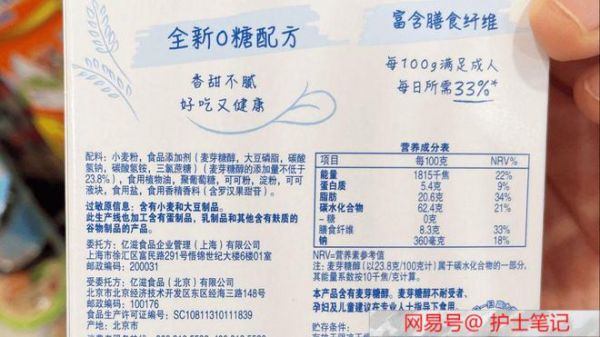 全新0糖配方
香甜不腻
好吃又健康
富含膳食纤维
每100g满足成人
每日所需33%*
配料：小麦粉，食品添加剂（麦芽糖醇，大豆磷脂，碳酸
氢钠，碳酸氢铵，三氯蔗糖）（麦芽糖醇的添加量不低于
23.8%），食用植物油，聚葡萄糖，可可粉，淀粉，可可
液块，食用盐，食用香精香料（含罗汉果甜苷）。
过敏原信息：含有小麦和大豆制品。
此生产线也加工含有蛋制品，乳制品和其他含有麸质的
谷物制品的产品。
委托方：亿滋食品企业管理（上海）有限公司
上海市徐汇区富民路291号悟锦世纪大楼6楼01室
邮政编码：200031
受委托方：亿滋食品（北京）有限公司
北京市北京经济技术开发区东区经海三路148号
邮政编码：100176
食品生产许可证编号：SC10811310111839
营养成分表
项目 每100克 NRV%
能量 1815千焦 22%
蛋白质 5.4克 9%
脂肪 20.6克 34%
碳水化合物 62.4克 21%
－糖 0克
膳食纤维 8.3克 33%
钠 360毫克 18%
NRV=营养素参考值
注：麦芽糖醇（以23.8克/100克计）属于碳水化合物的一部分，
其能量系数按10千焦/克计算。
本产品含有麦芽糖醇。麦芽糖醇不耐受者、
孕妇及儿童建议在专业人士指导下食用。
贮存条件：
网易号@ 护士笔记